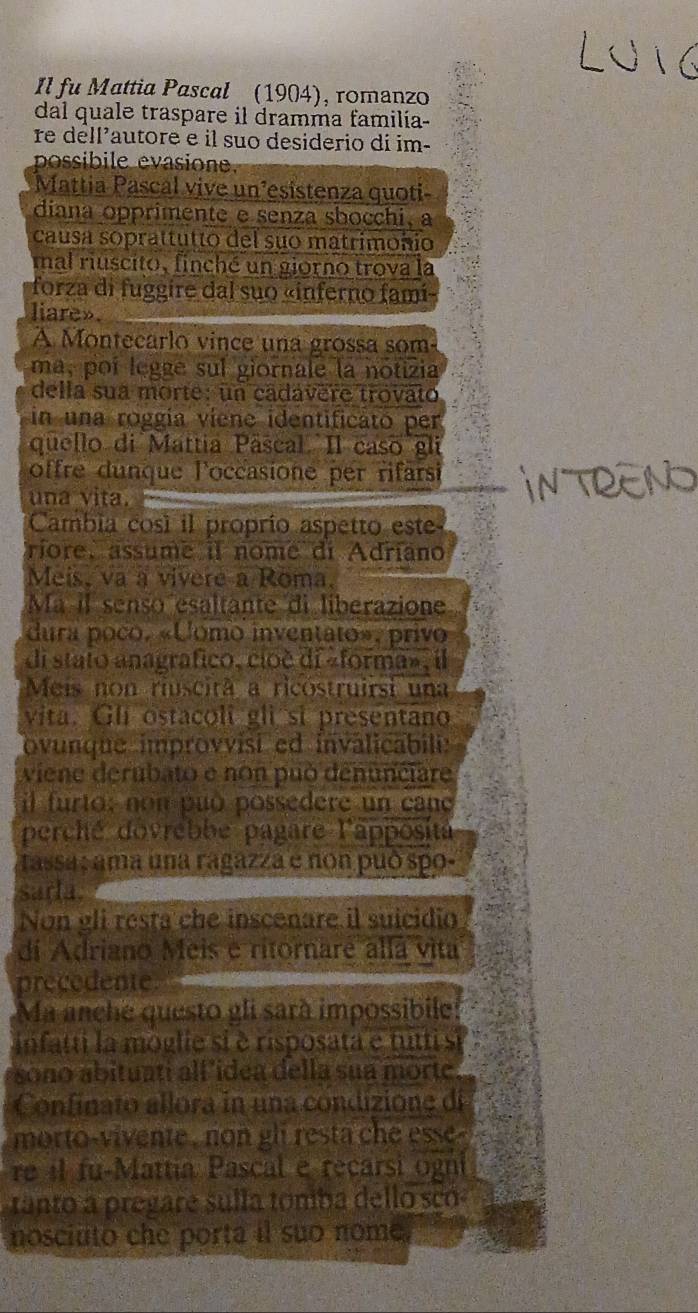 LUIG
Il fu Mattia Pascal (1904), romanzo
dal quale traspare il dramma familia-
re dell'autore e il suo desiderio di im-
possibile evasione.
Mattia Pascal vive un'esistenza quoti-
diana opprimente e senza sbocchi, a
causa soprattutto del suo matrimonio
mal riuscito, finché un giorno trova la
forza di fuggire dal suo «inferno fami-
liare».
A Montecarlo vince una grossa som-
ma, poi legge sul giornale la notizia
della sua morte: un cadavere trovato
in una roggia viene identificato per
quello di Mattia Pascal. Il caso gli
offre dunque l'occasione per rifarsi
una vita.
IN TRENO
Cambia così il proprio aspetto este-
riore, assume il nome di Adriano
Meis, va a vivere a Roma.
Ma il senso esaltante di liberazione
dura poco. «Uomo inventato», privo
di stato anagrafico, cioè di «forma», il
Meis non riuscirà a ricostruirsi una
vita. Gli ostacoli gli si presentano
ovunque improvvisi ed invalicabili:
viene derubato e non può denunciare
il furto; non può possedere un cane
perché dovrebbe pagare l'apposita
tassa; ama una ragazza e non può spo-
sarla.
Non gli resta che inscenare il suicidio
di Adriano Meis e ritornare alla vita
precedente.
Ma anche questo gli sarà impossibile:
infatti la moglie si è risposata e tutti si
sono abituati all'idea della sua morte.
Confinato allora in una condizione di
morto-vivente, non gli resta che esse-
re il fu-Mattia Pascal e recarsi ogni
tanto a pregare sulla tomba dello sco-
nosciuto che porta il suo nome.